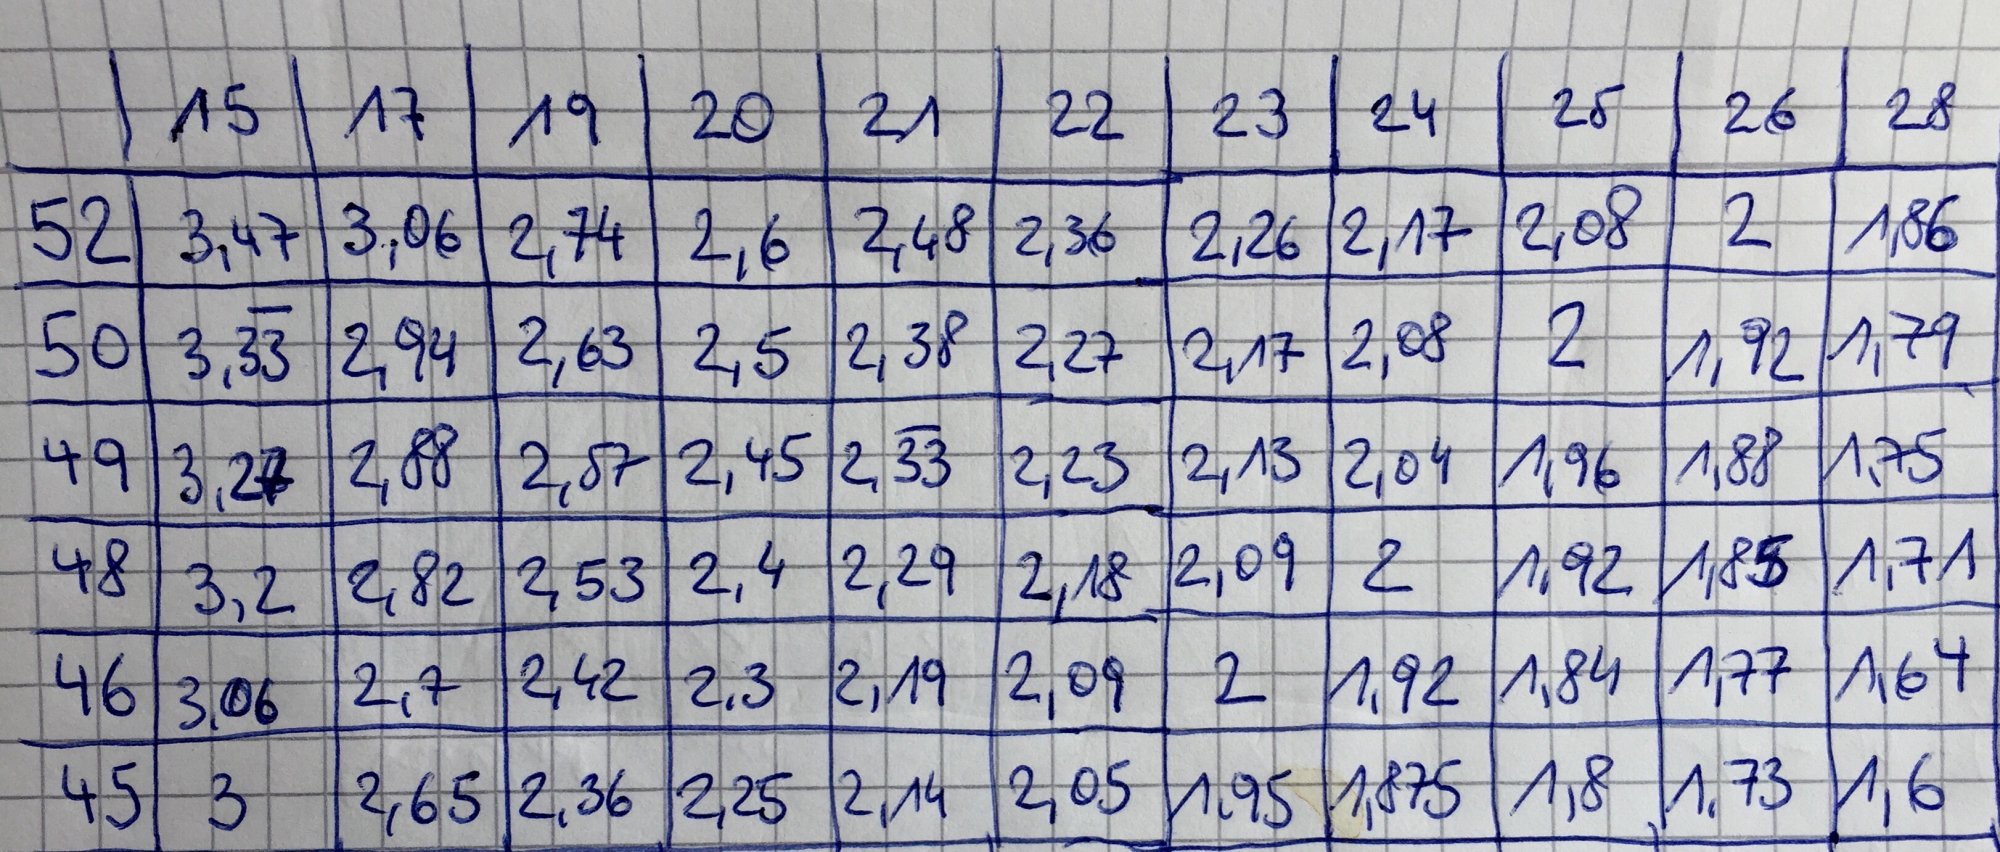 15 17 19 20 21 22 23 24 25 26 28
52 3,47 3,06 2,74 2,6 2,48 2,36 2,26 2,17 2,08 2 1,86
50 3,3̅3̅ 2,94 2,63 2,5 2,38 2,27 2,17 2,08 2 1,92 1,79
49 3,27 2,88 2,57 2,45 2,3̅3̅ 2,23 2,13 2,04 1,96 1,88 1,75
48 3,2 2,82 2,53 2,4 2,29 2,18 2,09 2 1,92 1,85 1,71
46 3,06 2,7 2,42 2,3 2,19 2,09 2 1,92 1,84 1,77 1,64
45 3 2,65 2,36 2,25 2,14 2,05 1,95 1,875 1,8 1,73 1,6